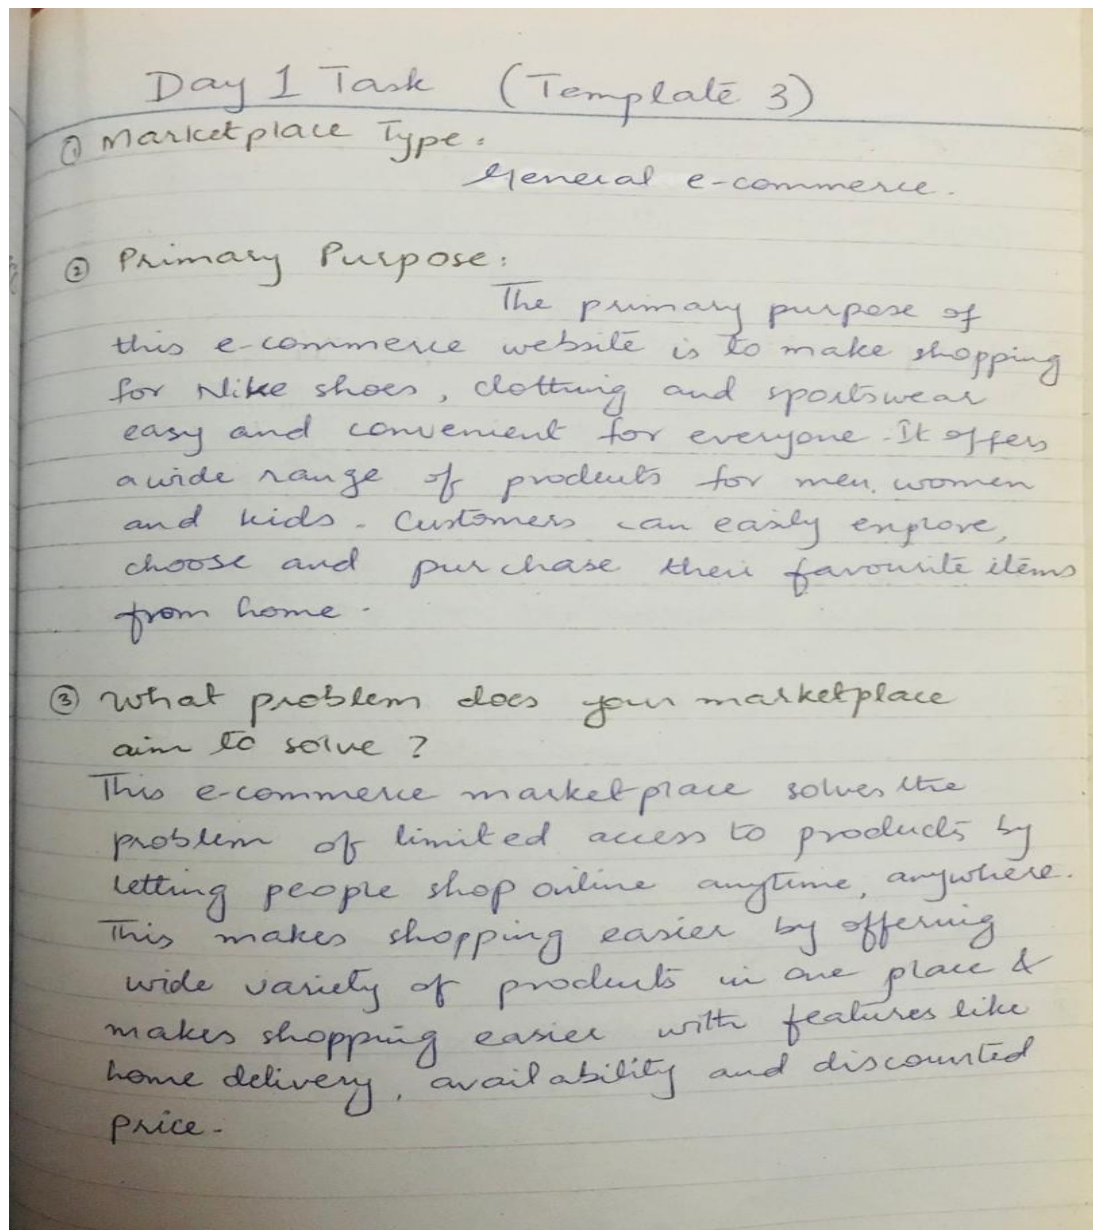 Day 1 Task (Template 3)
① Marketplace Type:
General e-commerce.
② Primary Purpose:
The primary purpose of
this e-commerce website is to make shopping
for Nike shoes, clothing and sportswear
easy and convenient for everyone. It offers
a wide range of products for men, women
and kids. Customers can easily explore,
choose and purchase their favourite items
from home.
③ What problem does your marketplace
aim to solve?
This e-commerce marketplace solves the
problem of limited access to products by
letting people shop online anytime, anywhere.
This makes shopping easier by offering
wide variety of products in one place &
makes shopping easier with features like
home delivery, availability and discounted
price.